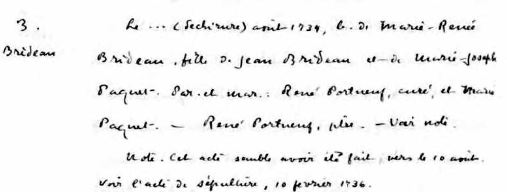 3.
Le ... (déchirure) août 1734, b. de Marie-René
Brideau
Brideau, fille de Jean Brideau et de Marie-Joseph
Paquet. Par. et mar.: René Portneuf, curé, et Marie
Paquet. — René Portneuf, ptre. — Voir note.
Note. Cet acte semble avoir été fait, vers le 10 août.
Voir l'acte de sépulture, 10 février 1736.